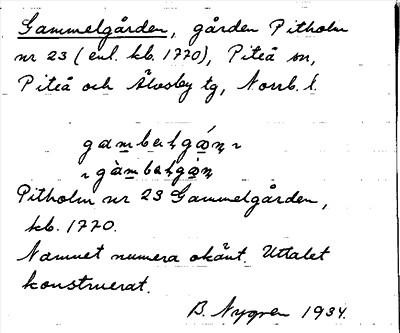 Gammelgården, gården Pitholm
nr 23 (enl. kb. 1770), Piteå sn,
Piteå och Älvsby tg, Norrb. l.
Pitholm nr 23 Gammelgården,
kb. 1770.
Namnet numera okänt. Uttalet
konstruerat.
B. Nygren 1934.